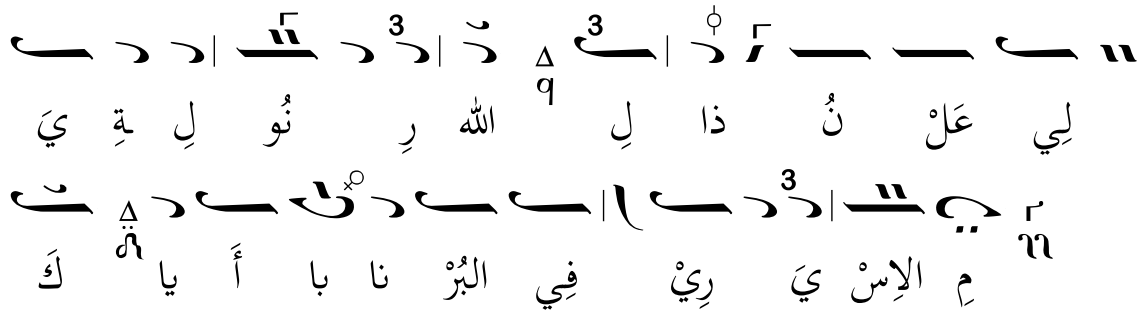 لِي عَلْ نُ ذا لِ الله رِ نُو لِ ـةِ يَ
مِ الاِسْ يَ رِيْ فِي البُرْ نا با أَ يا كَ